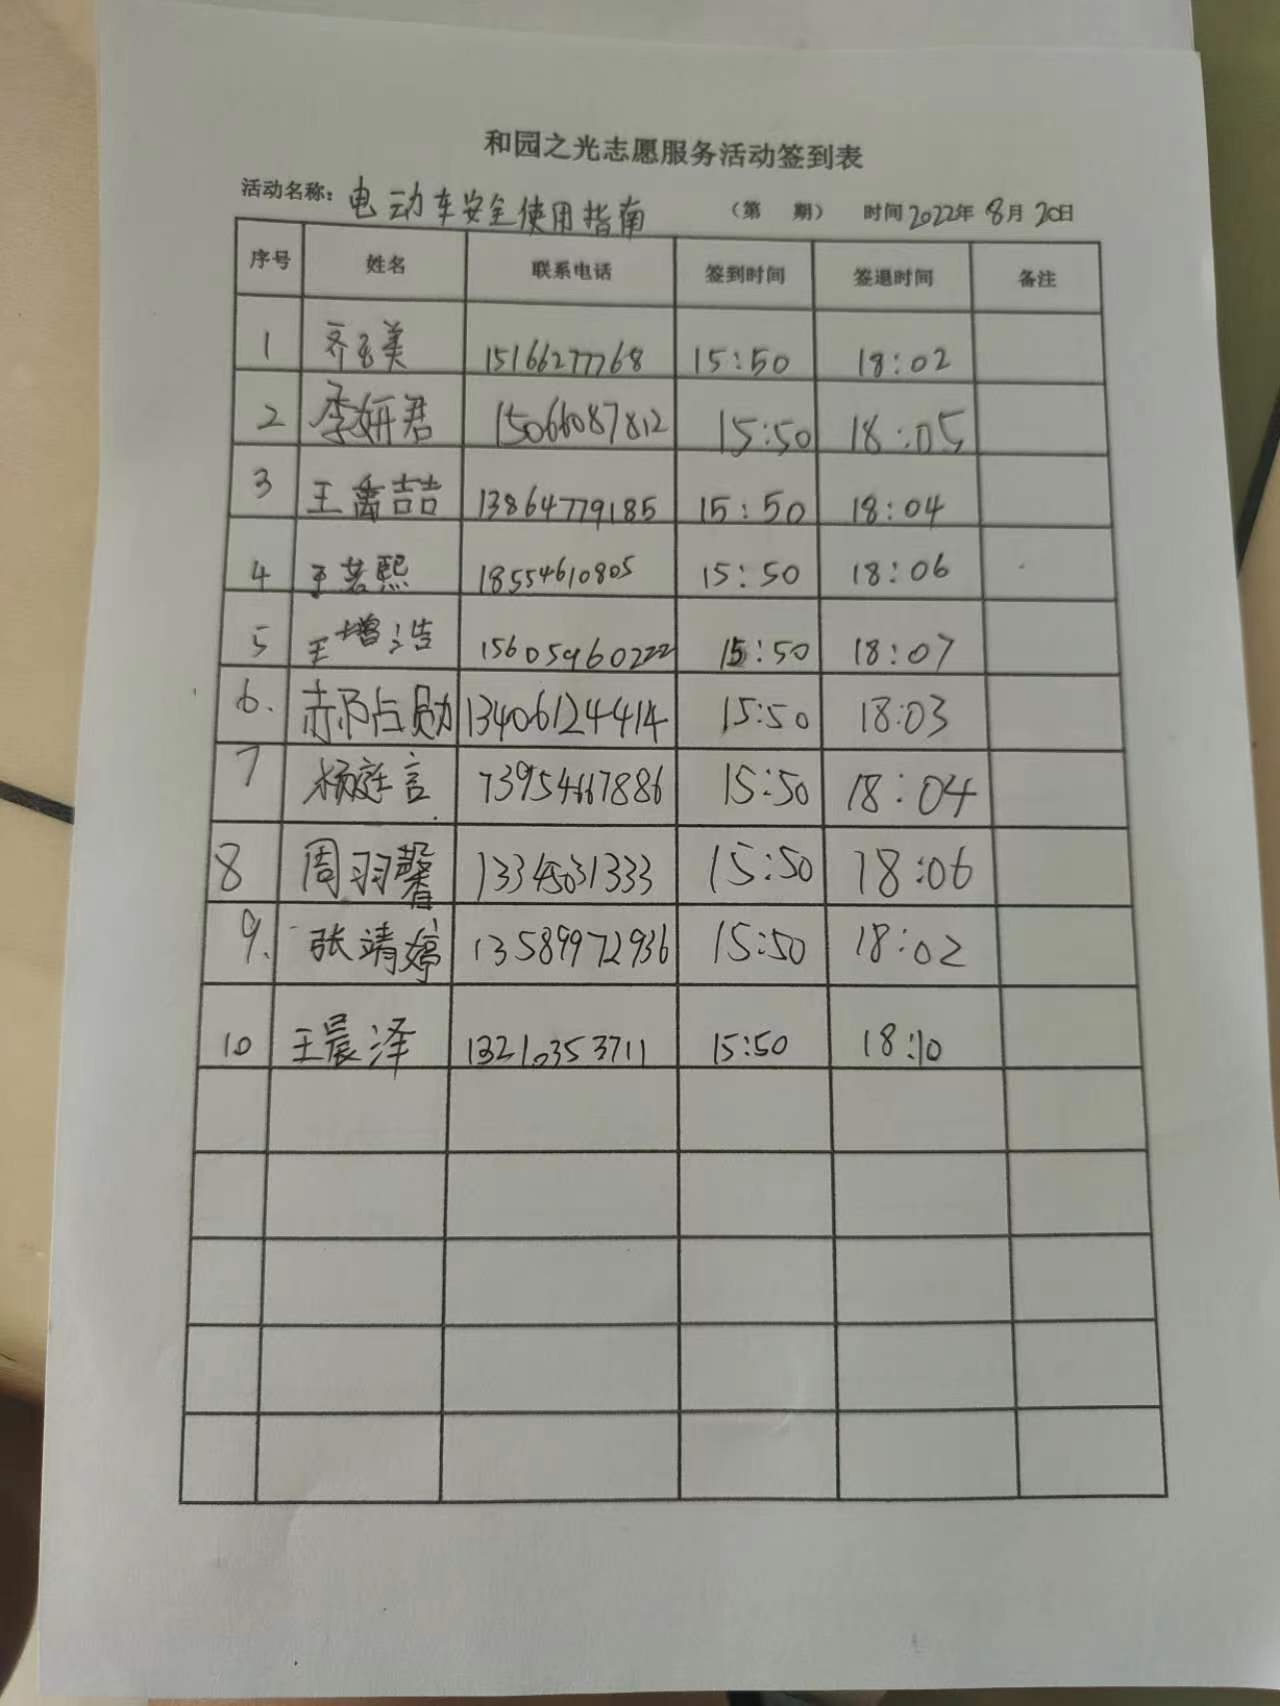 和园之光志愿服务活动签到表
活动名称：电动车安全使用指南 （第 期） 时间2022年8月20日
序号 姓名 联系电话 签到时间 签退时间 备注
1 齐玉美 15166277768 15:50 18:02
2 李妍君 15066087812 15:50 18:05
3 王禹喆 13864779185 15:50 18:04
4 于若熙 18554610805 15:50 18:06
5 王增浩 15605960222 15:50 18:07
6. 郝占勋 13406124414 15:50 18:03
7 杨庭言 13954667886 15:50 18:04
8 周羽馨 13345031333 15:50 18:06
9. 张靖婷 13589972936 15:50 18:02
10 王晨泽 13210353711 15:50 18:10